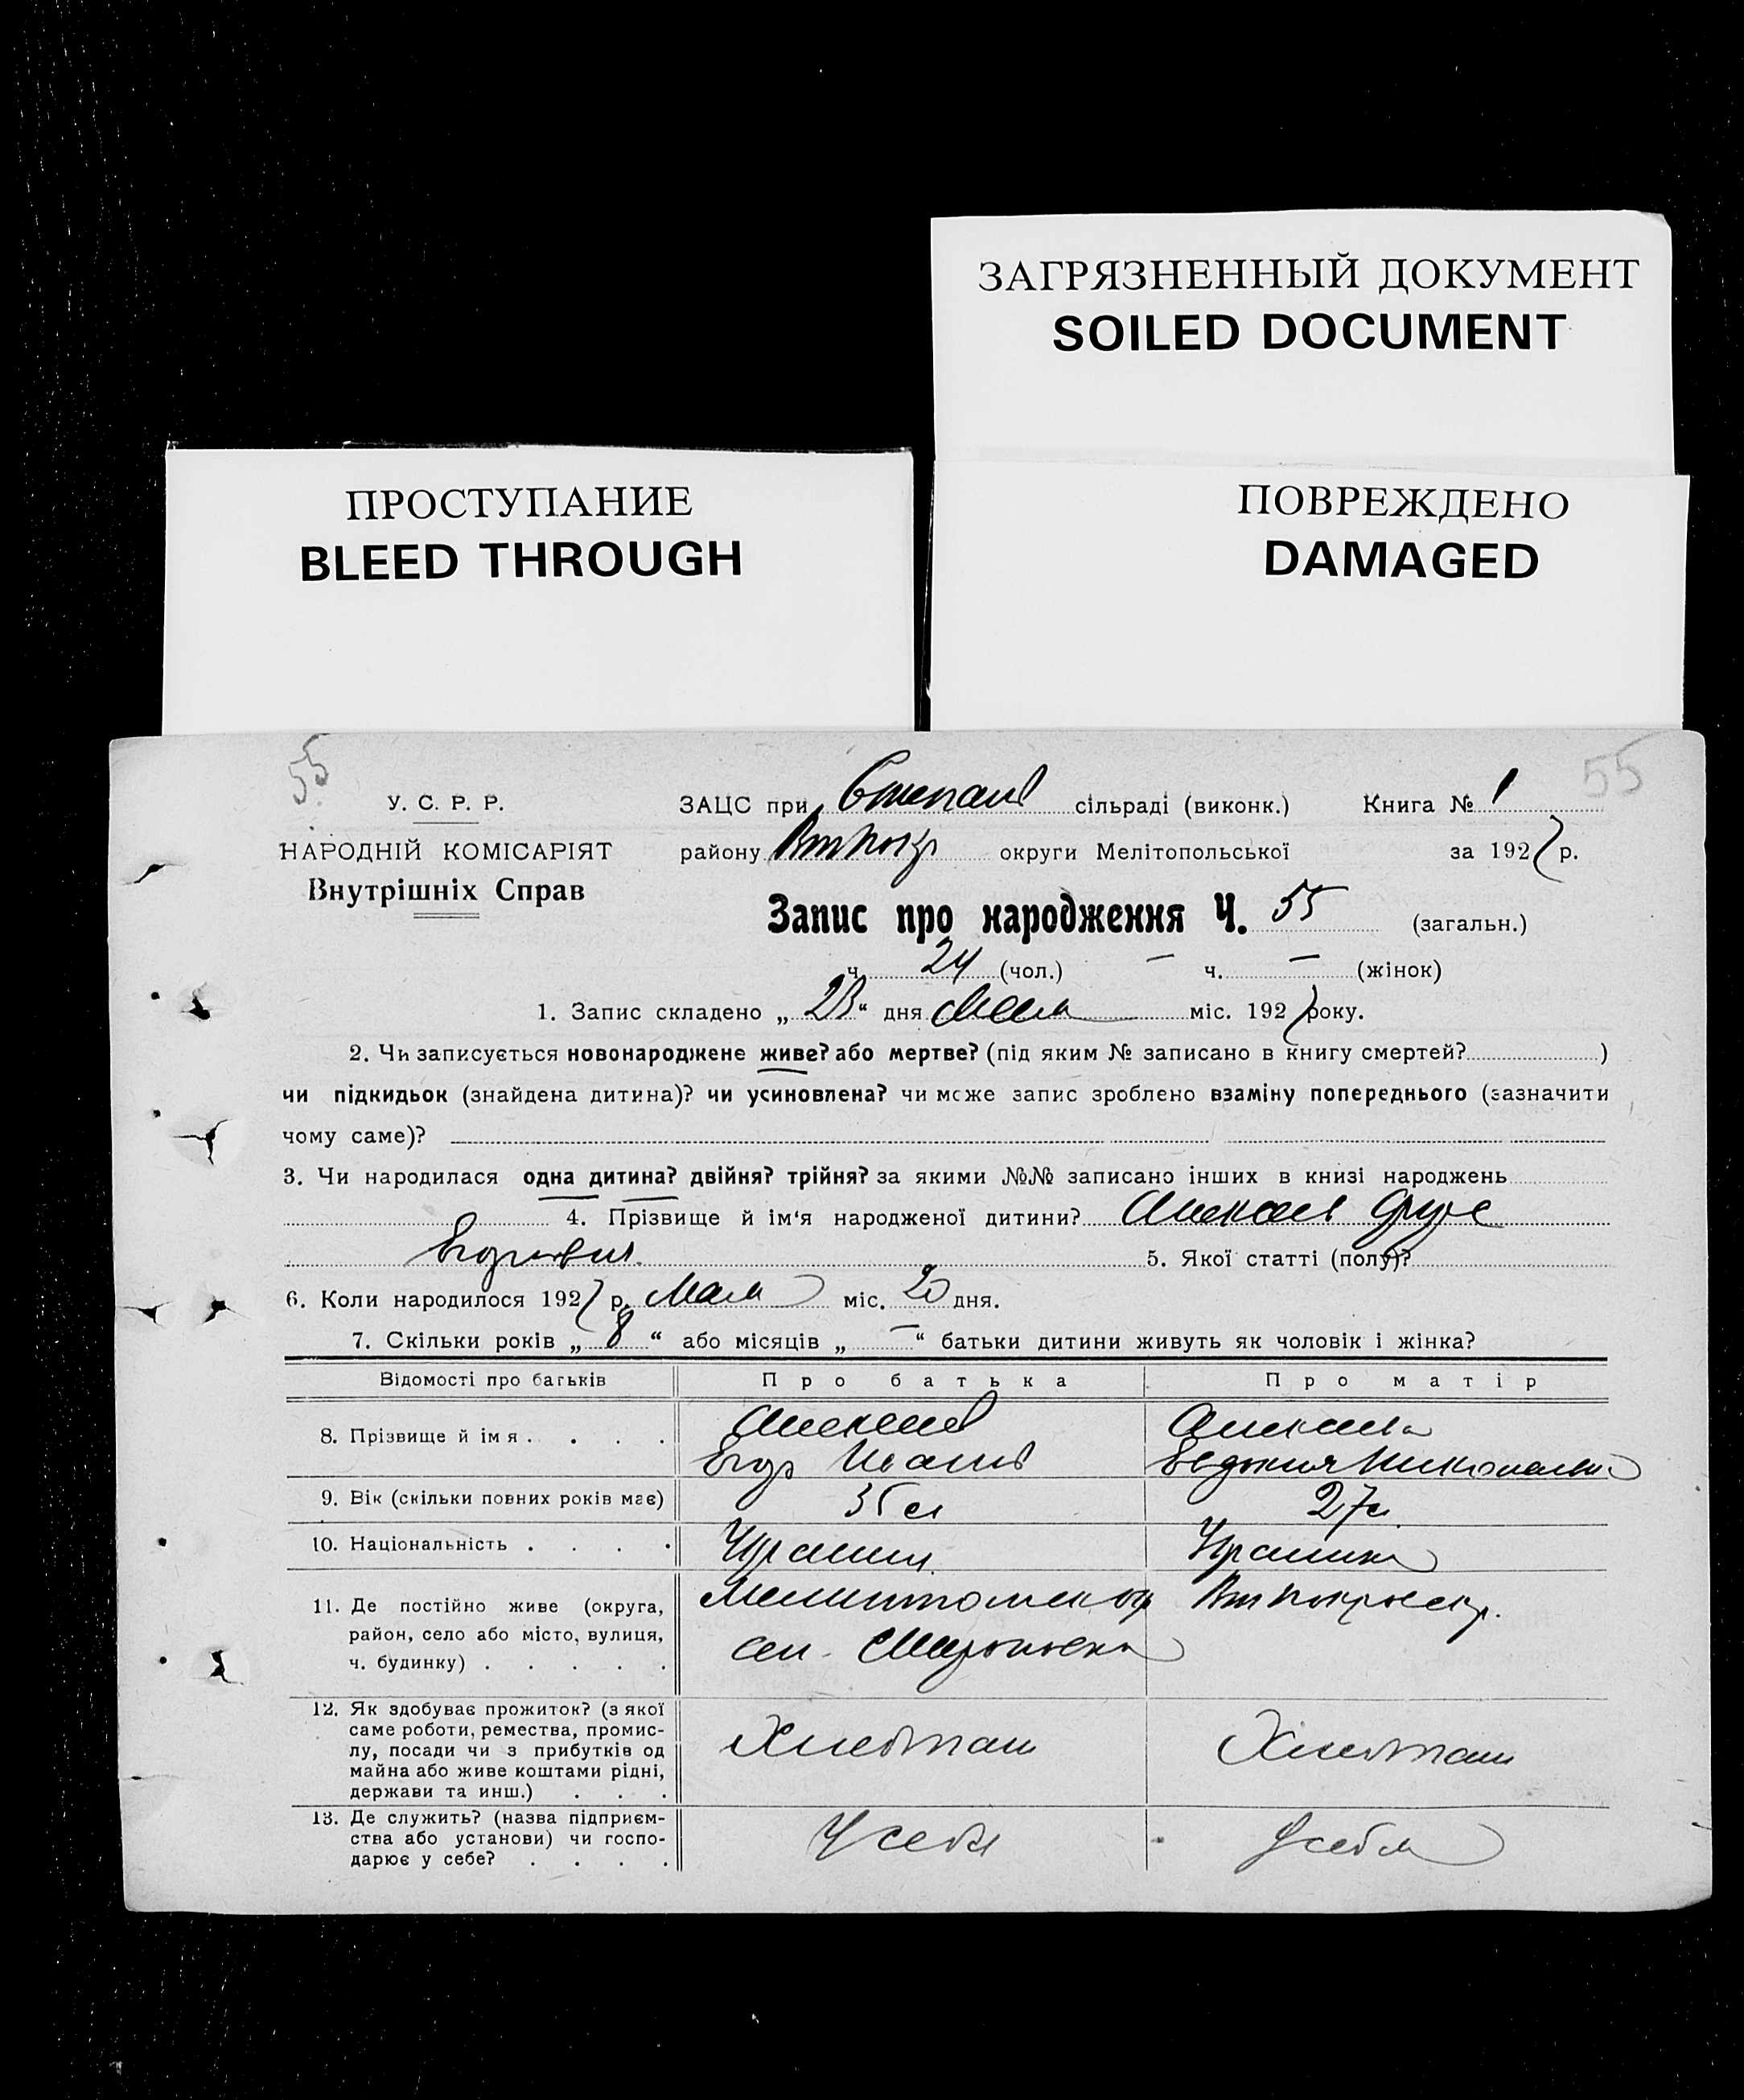 ЗАГРЯЗНЕННЫЙ ДОКУМЕНТ
SOILED DOCUMENT
ПРОСТУПАНИЕ
BLEED THROUGH
ПОВРЕЖДЕНО
DAMAGED
55 55
У. С. Р. Р.
НАРОДНІЙ КОМІСАРІЯТ
Внутрішніх Справ
ЗАЦС при Степан сільраді (виконк.) Книга № 1
району округи Мелітопольської за 1927 р.
Запис про народження Ч. 55 (загальн.)
ч. 24 (чол.) — ч. — (жінок)
1. Запис складено „ 23 “ дня Мая міс. 1927 року.
2. Чи записується новонароджене живе? або мертве? (під яким № записано в книгу смертей? )
чи підкидьок (знайдена дитина)? чи усиновлена? чи може запис зроблено взаміну попереднього (зазначити
чому саме)?
3. Чи народилася одна дитина? двійня? трійня? за якими №№ записано інших в книзі народжень
4. Прізвище й ім'я народженої дитини?
5. Якої статті (полу)?
6. Коли народилося 1927 р. Мая міс. 20 дня.
7. Скільки років „ 8 “ або місяців „ — “ батьки дитини живуть як чоловік і жінка?
Відомості про батьків Про батька Про матір
8. Прізвище й імя . . . . .
Егор Иванов Евдокия
9. Вік (скільки повних років має) 35 л 27 л.
10. Національність . . . .
11. Де постійно живе (округа,
район, село або місто, вулиця,
ч. будинку) . . . . .
сел.
12. Як здобуває прожиток? (з якої
саме роботи, ремества, промис-
лу, посади чи з прибутків од
майна або живе коштами рідні,
держави та инш.) . . .
Хлебпаш Хлебпаш
13. Де служить? (назва підприєм-
ства або установи) чи госпо-
дарює у себе? . . . .
У себя У себя